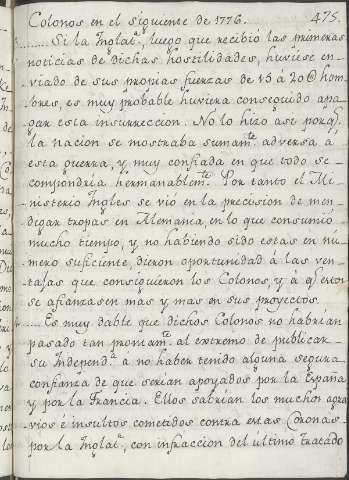 Colonos en el siguiente de 1776. 475.
Si la Inglat.ª, luego que recibió las primeras
noticias de dichas hostilidades, huviese en-
viado de sus propias fuerzas de 15 à 20@ hom-
bres, es muy probable huviera conseguido apa-
gar esta insurreccion. No lo hizo asi porq.e
la nacion se mostraba sumam.te adversa a
esta guerra, y muy confiada en que todo se
compondria hermanablem.te Por tanto el Mi-
nisterio Ingles se vió en la precision de men-
digar tropas en Alemania, en lo que consumió
mucho tiempo, y no habiendo sido estas en nu-
mero suficiente, dieron oportunidad à las ven-
tajas que consiguieron los Colonos, y à q.e estos
se afianzasen mas y mas en sus proyectos.
Es muy dable que dichos Colonos no habrian
pasado tan prontam.te al extremo de publicar
su Independ.ª a no haber tenido alguna segura
confianza de que serian apoyados por la España
y por la Francia. Ellos sabrian los muchos agra
vios è insultos cometidos contra estas Coronas
por la Inglat.ª, con infraccion del ultimo Tratado